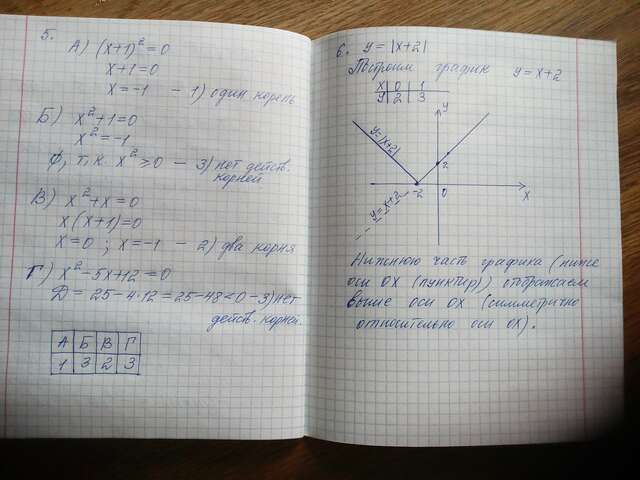 5.
А) (x+1)² = 0
x+1=0
x = -1 - 1) один корень
Б) x²+1=0
x² = -1
∅, т.к. x² ≥ 0 - 3) нет действ.
корней
В) x² + x = 0
x(x+1)=0
x = 0 ; x = -1 - 2) два корня
Г) x² - 5x + 12 = 0
D = 25 - 4·12 = 25 - 48 < 0 - 3) нет
действ. корней.
А Б В Г
1 3 2 3
6. y = |x+2|
Построим график y = x+2
x 0 1
y 2 3
y
y=|x+2|
2
-2 0 x
y = x+2
Нижнюю часть графика (ниже
оси OX (пунктир)) отображаем
выше оси OX (симметрично
относительно оси OX).